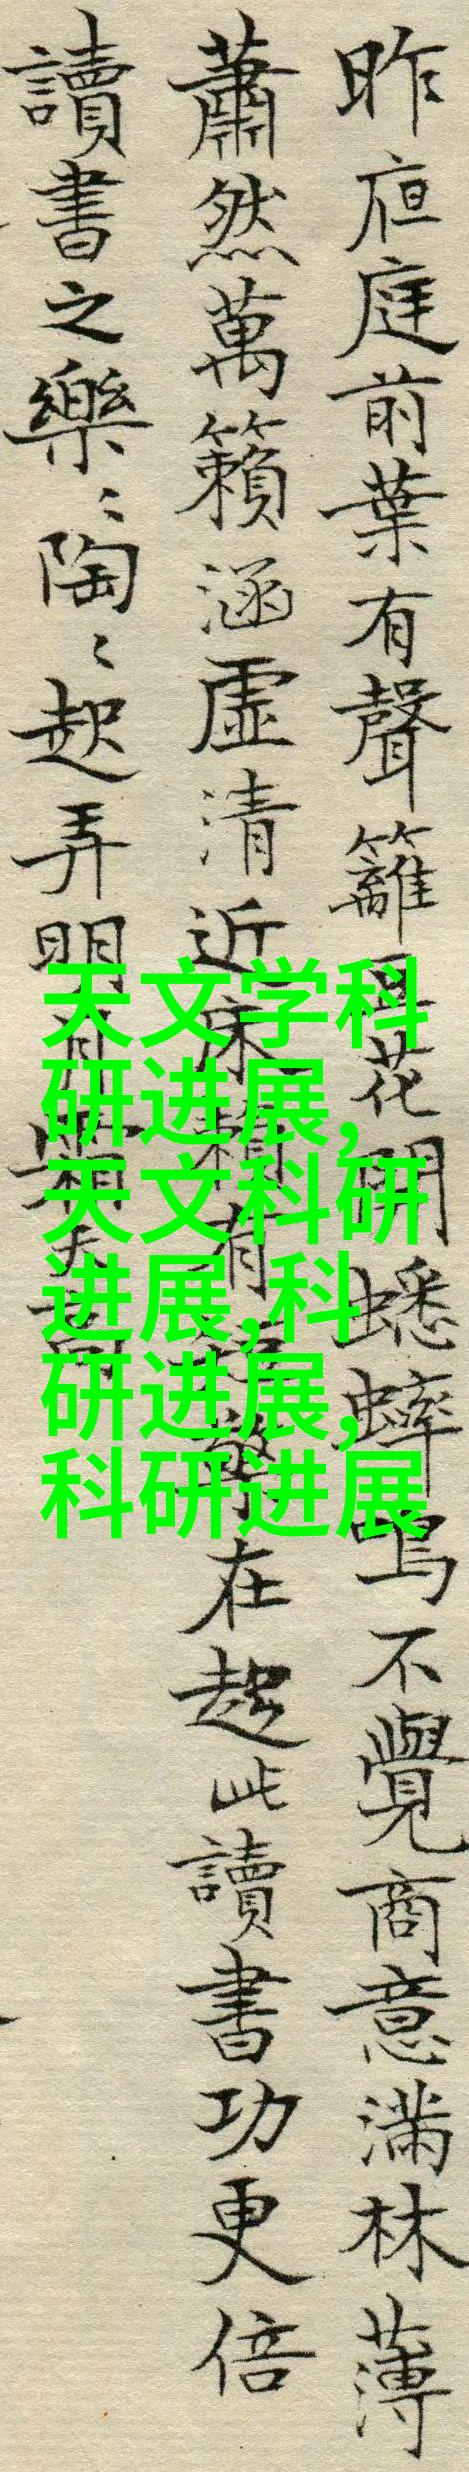 昨亱庭前葉有聲籬豆花開蟋蟀鳴不覺商意滿林薄
蕭然萬籟涵虛清近床賴有短檠在趂此讀書功更倍
讀書之樂〻陶〻起弄明月霜天高
天文学科
研进展,
天文科研
进展,科
研进展,
科研进展